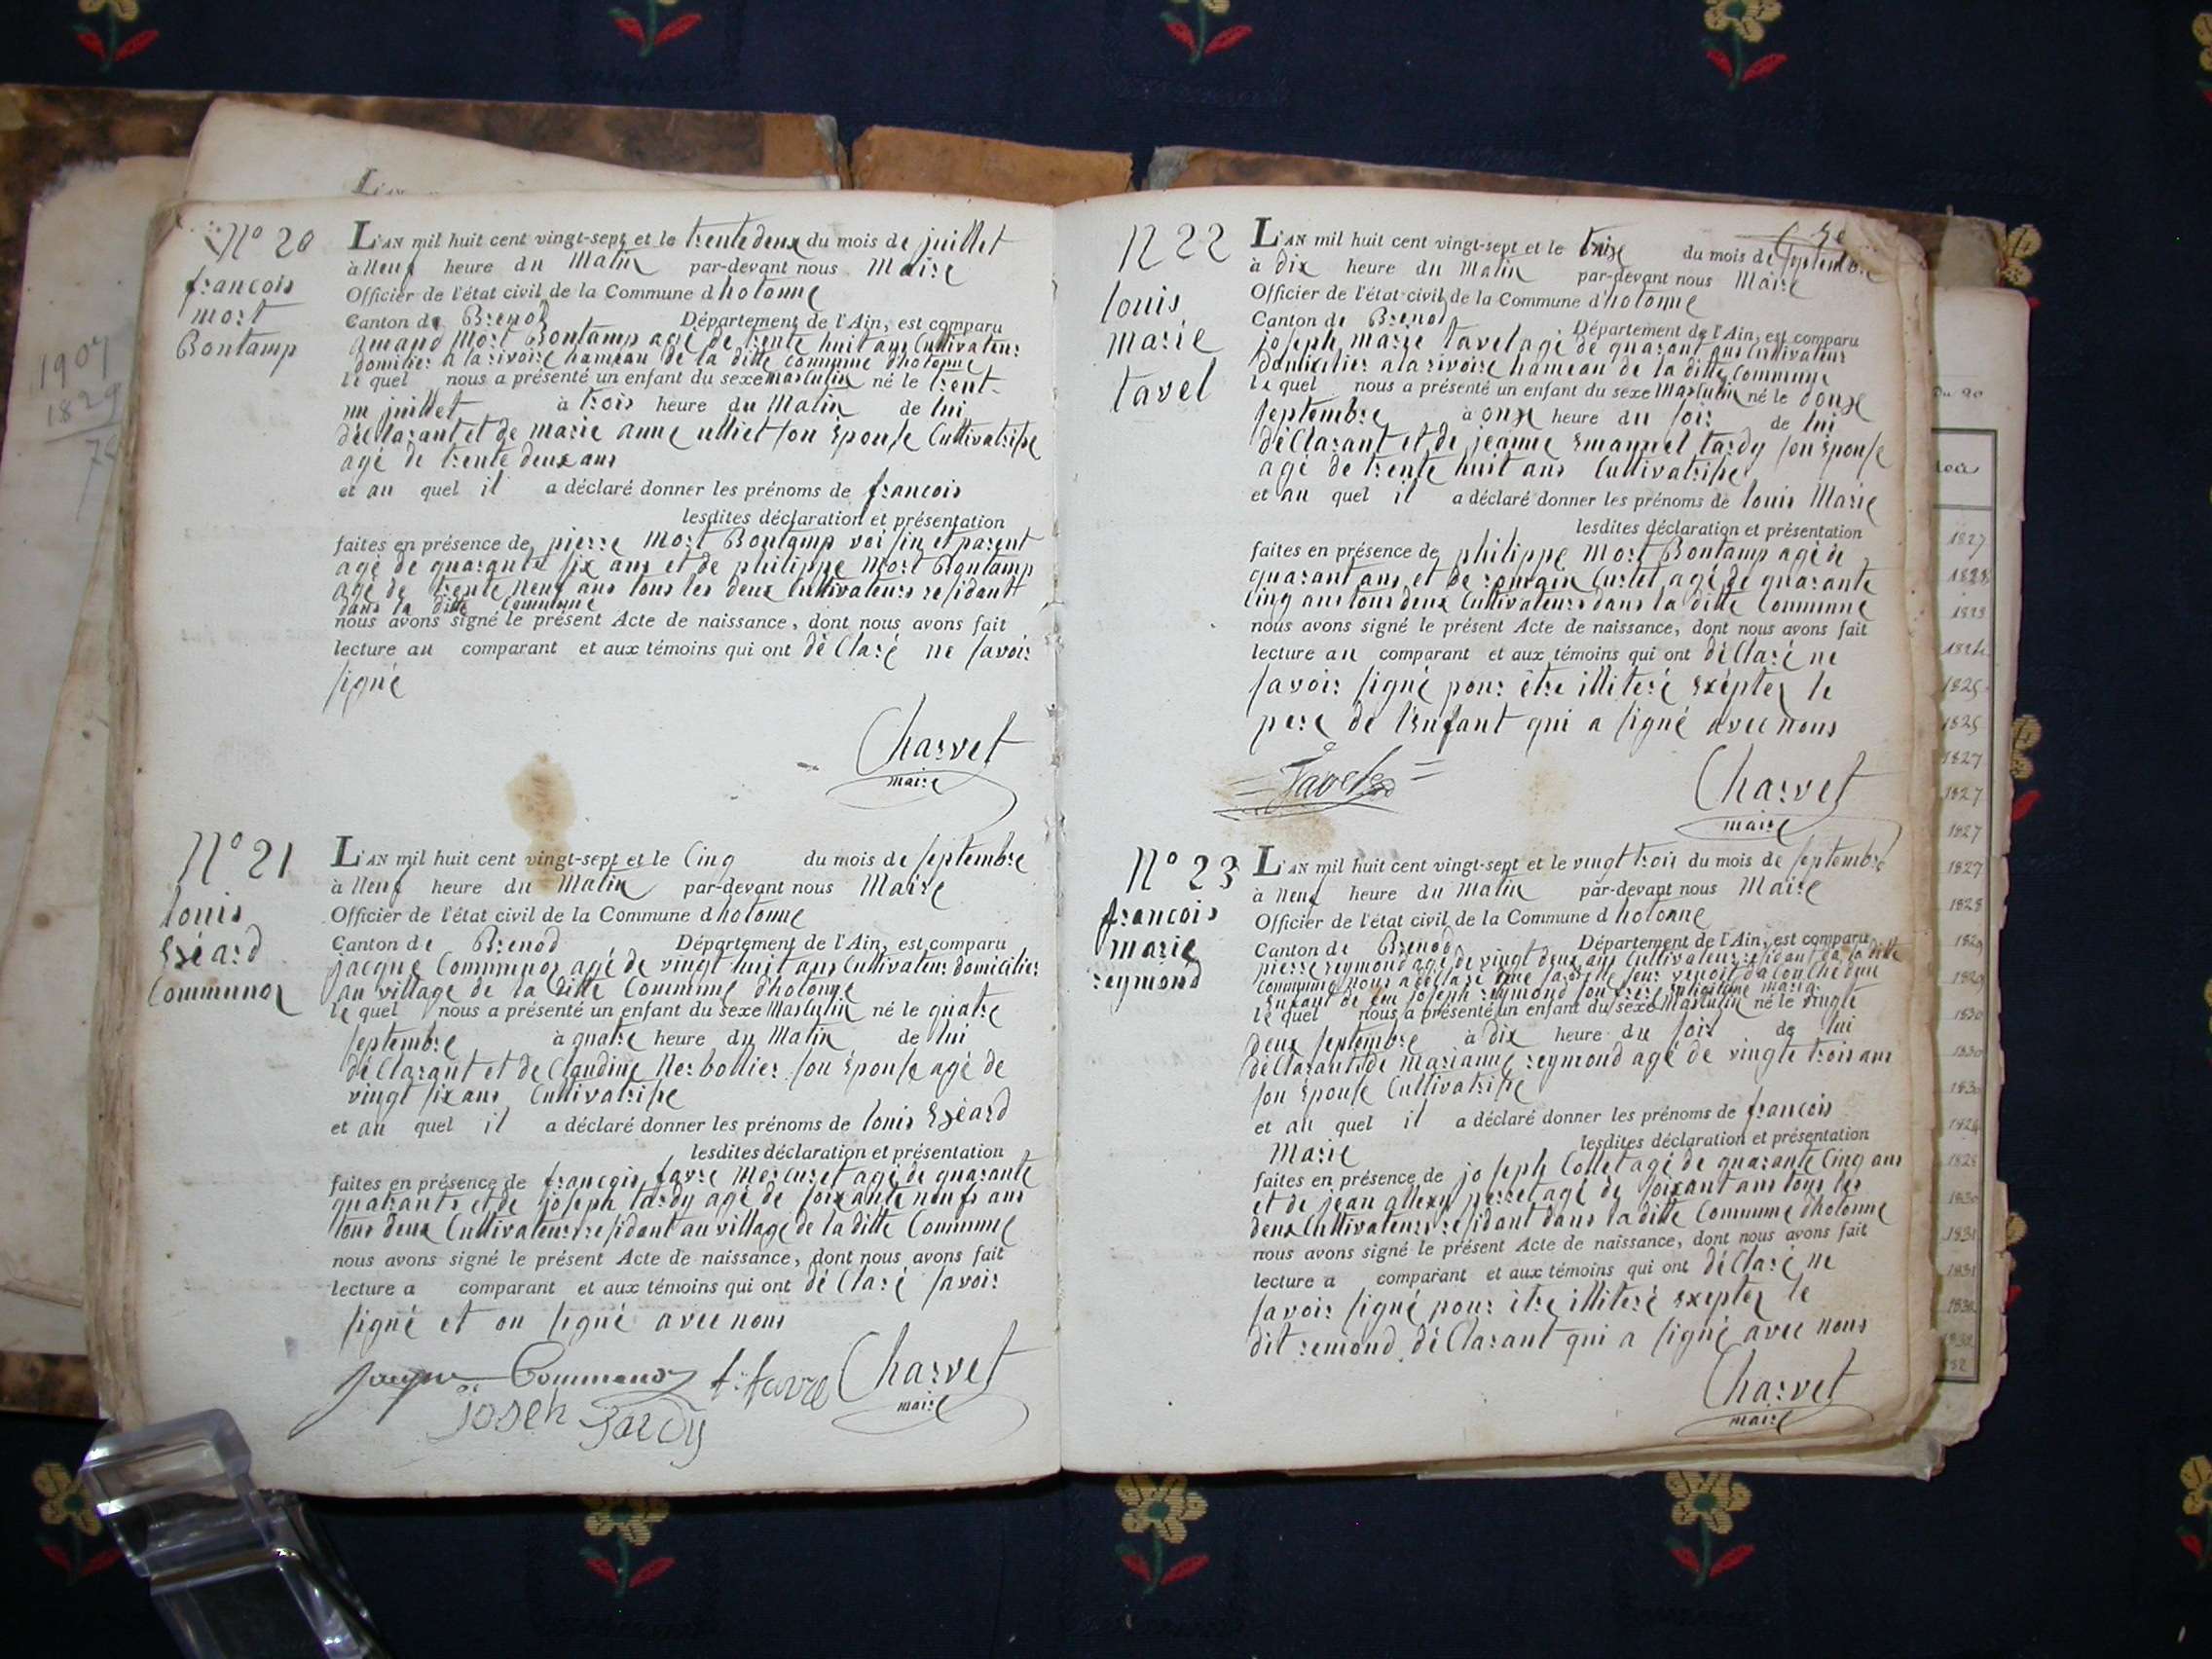 1907
1829
L'AN
N° 20
francois
mort
Bontamp
L'AN mil huit cent vingt-sept et le trente deux du mois de juillet
à Neuf heure du Matin par-devant nous Maire
Officier de l'état civil de la Commune d'holonne
Canton de Brenod Département de l'Ain, est comparu
amand Mort Bontamp agé de trente huit ans Cultivateur
domicilier a la rivoire hameau de la ditte Commune dholonne
le quel nous a présenté un enfant du sexe masculin né le trent
un juillet à trois heure du Matin de lui
déclarant et de marie anne ulliet son Epouse Cultivatrise
agé de trente deux ans
et au quel il a déclaré donner les prénoms de francois
lesdites déclaration et présentation
faites en présence de pierre Mort Bontamp voisin et parent
agé de quarante six ans et de philippe Mort Bontamp
agé de trente Neuf ans tous les deux Cultivateurs residant
dans la ditte Commune
nous avons signé le présent Acte de naissance, dont nous avons fait
lecture au comparant et aux témoins qui ont déClaré ne savoir
signé
Charvet
maire
N° 21
louis
Ezéard
Communoz
L'AN mil huit cent vingt-sept et le Cinq du mois de septembre
à Neuf heure du Matin par-devant nous Maire
Officier de l'état civil de la Commune dholonne
Canton de Brenod Département de l'Ain, est comparu
jacque Communoz agé de vingt huit ans Cultivateur domicilier
au village de la ditte Commune dholonne
le quel nous a présenté un enfant du sexe Masculin né le quatre
septembre à quatre heure du Matin de lui
déClarant et de Claudine Nerbollier son Epouse agé de
vingt six ans Cultivatrise
et au quel il a déclaré donner les prénoms de louis Ezéard
lesdites déclaration et présentation
faites en présence de francois favre Mercuret agé de quarante
quatrants et de joseph tardy agé de soixante neufs ans
tous deux Cultivateurs residant au village de la ditte Commune
nous avons signé le présent Acte de naissance, dont nous avons fait
lecture a comparant et aux témoins qui ont déClaré savoir
signé et on signé avec nous
jaque Communoz f. favre Charvet
maire
joseh Tardy
N 22
louis
marie
tavel
L'AN mil huit cent vingt-sept et le treize du mois de septembre
à dix heure du Matin par-devant nous Maire
Officier de l'état-civil de la Commune d'holonne
Canton de Brenod Département de l'Ain, est comparu
joseph marie tavel agé de quarant ans Cultivateur
domicilier a la rivoire hameau de la ditte Commune
le quel nous a présenté un enfant du sexe Masculin né le douze
septembre à onze heure du soir de lui
déClarant et de jeanne Emanuel tardy son Epouse
agé de trente huit ans Cultivatrise
et au quel il a déclaré donner les prénoms de louis Marie
lesdites déclaration et présentation
faites en présence de philippe Mort Bontamp agé de
quarant ans et de Curtet agé de quarante
Cinq ans tous deux Cultivateurs dans la ditte Commune
nous avons signé le présent Acte de naissance, dont nous avons fait
lecture au comparant et aux témoins qui ont déClaré ne
savoir signé pour être illiteré Exèptez le
pere de l'Enfant qui a signé avec nous
Tavel
Charvet
maire
N° 23
francois
marie
reymond
L'AN mil huit cent vingt-sept et le vingt trois du mois de septembre
à Neuf heure du Matin par-devant nous Maire
Officier de l'état civil de la Commune d holonne
Canton de Brenod Département de l'Ain, est comparu
pierre reymond agé de vingt deux ans Cultivateur residant da la ditte
Commune nous a déClaré que sa belle seur venoit daCouche dun
Enfant de feu joseph reymond son frere
le quel nous a présenté un enfant du sexe Masculin né le vingte
deux septembre à dix heure du soir de lui
déClarant de marianne reymond agé de vingte trois ans
son Epouse Cultivatrise
et au quel il a déclaré donner les prénoms de francois
Marie lesdites déclaration et présentation
faites en présence de joseph Collet agé de quarante Cinq ans
et de jean allexy perret agé de soixant ans tous les
deux Cultivateurs residant dans la ditte Commune dholonne
nous avons signé le présent Acte de naissance, dont nous avons fait
lecture a comparant et aux témoins qui ont déClaré ne
savoir signé pour être illiteré Exeptez le
dit remond déClarant qui a signé avec nous
Charvet
maire
1827
1828
1829
1824
1825
1825
1827
1827
1827
1827
1828
1829
1829
1830
1830
1830
1824
1828
1830
1831
1831
1832